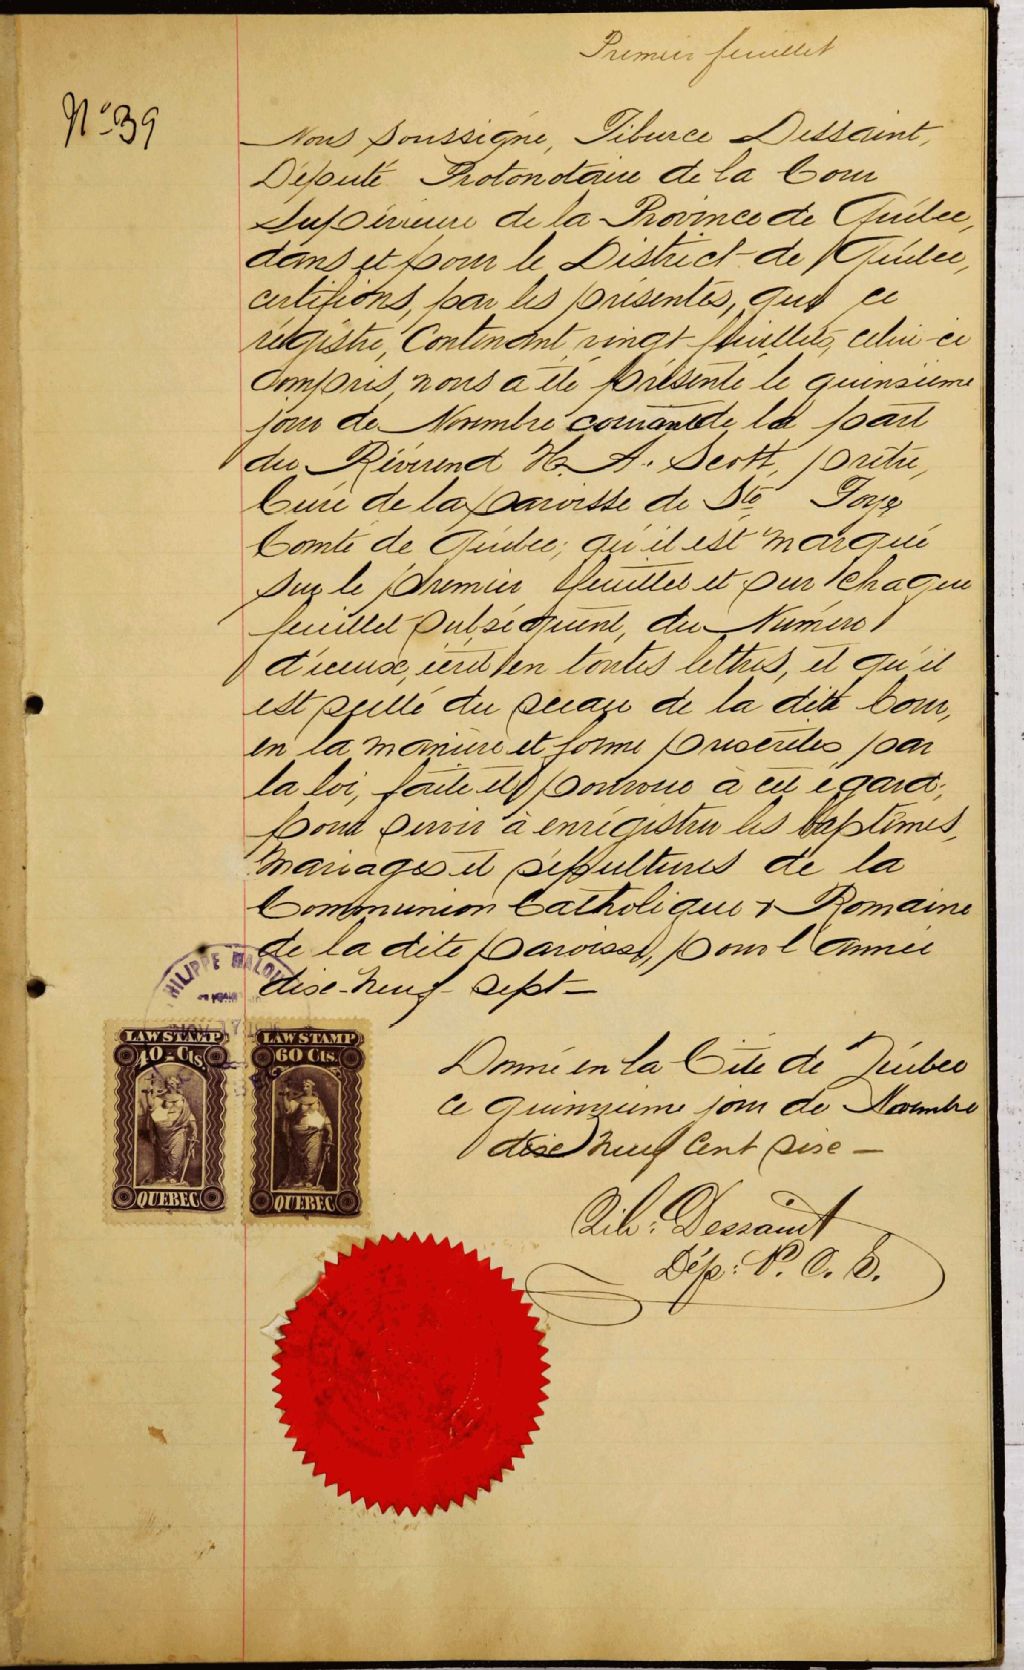 Premier feuillet
No 39
Nous soussigné, Tiburce Dessaint,
Député Protonotaire de la Cour
Supérieure de la Province de Québec,
dans et pour le District de Québec,
certifions, par les présentes, que ce
régistre, Contenant vingt feuillets, celui-ci
compris, nous a été présenté le quinzième
jour de Novembre courant de la part
du Révérend H. A. Scott, prêtre,
Curé de la paroisse de Ste Foye
Comté de Québec; qu'il est marqué
sur le premier feuillet et sur chaque
feuillet subséquent, du Numéro
d'iceux, écrit en toutes lettres, et qu'il
est scellé du sceau de la dite Cour,
en la manière et forme prescrites par
la loi, faite et pourvue à cet égard;
pour servir à enrégistrer les baptêmes,
Mariages et sépultures de la
Communion Catholique & Romaine
de la dite paroisse, pour l'année
dix-neuf-sept—
Donné en la Cité de Québec
ce quinzième jour de Novembre
dix neuf cent six —
Tib: Dessaint
Dép: P. C. S.
PHILIPPE MALOUIN
NOV 17
LAW STAMP LAW STAMP
40-Cts 60 Cts.
QUEBEC QUEBEC